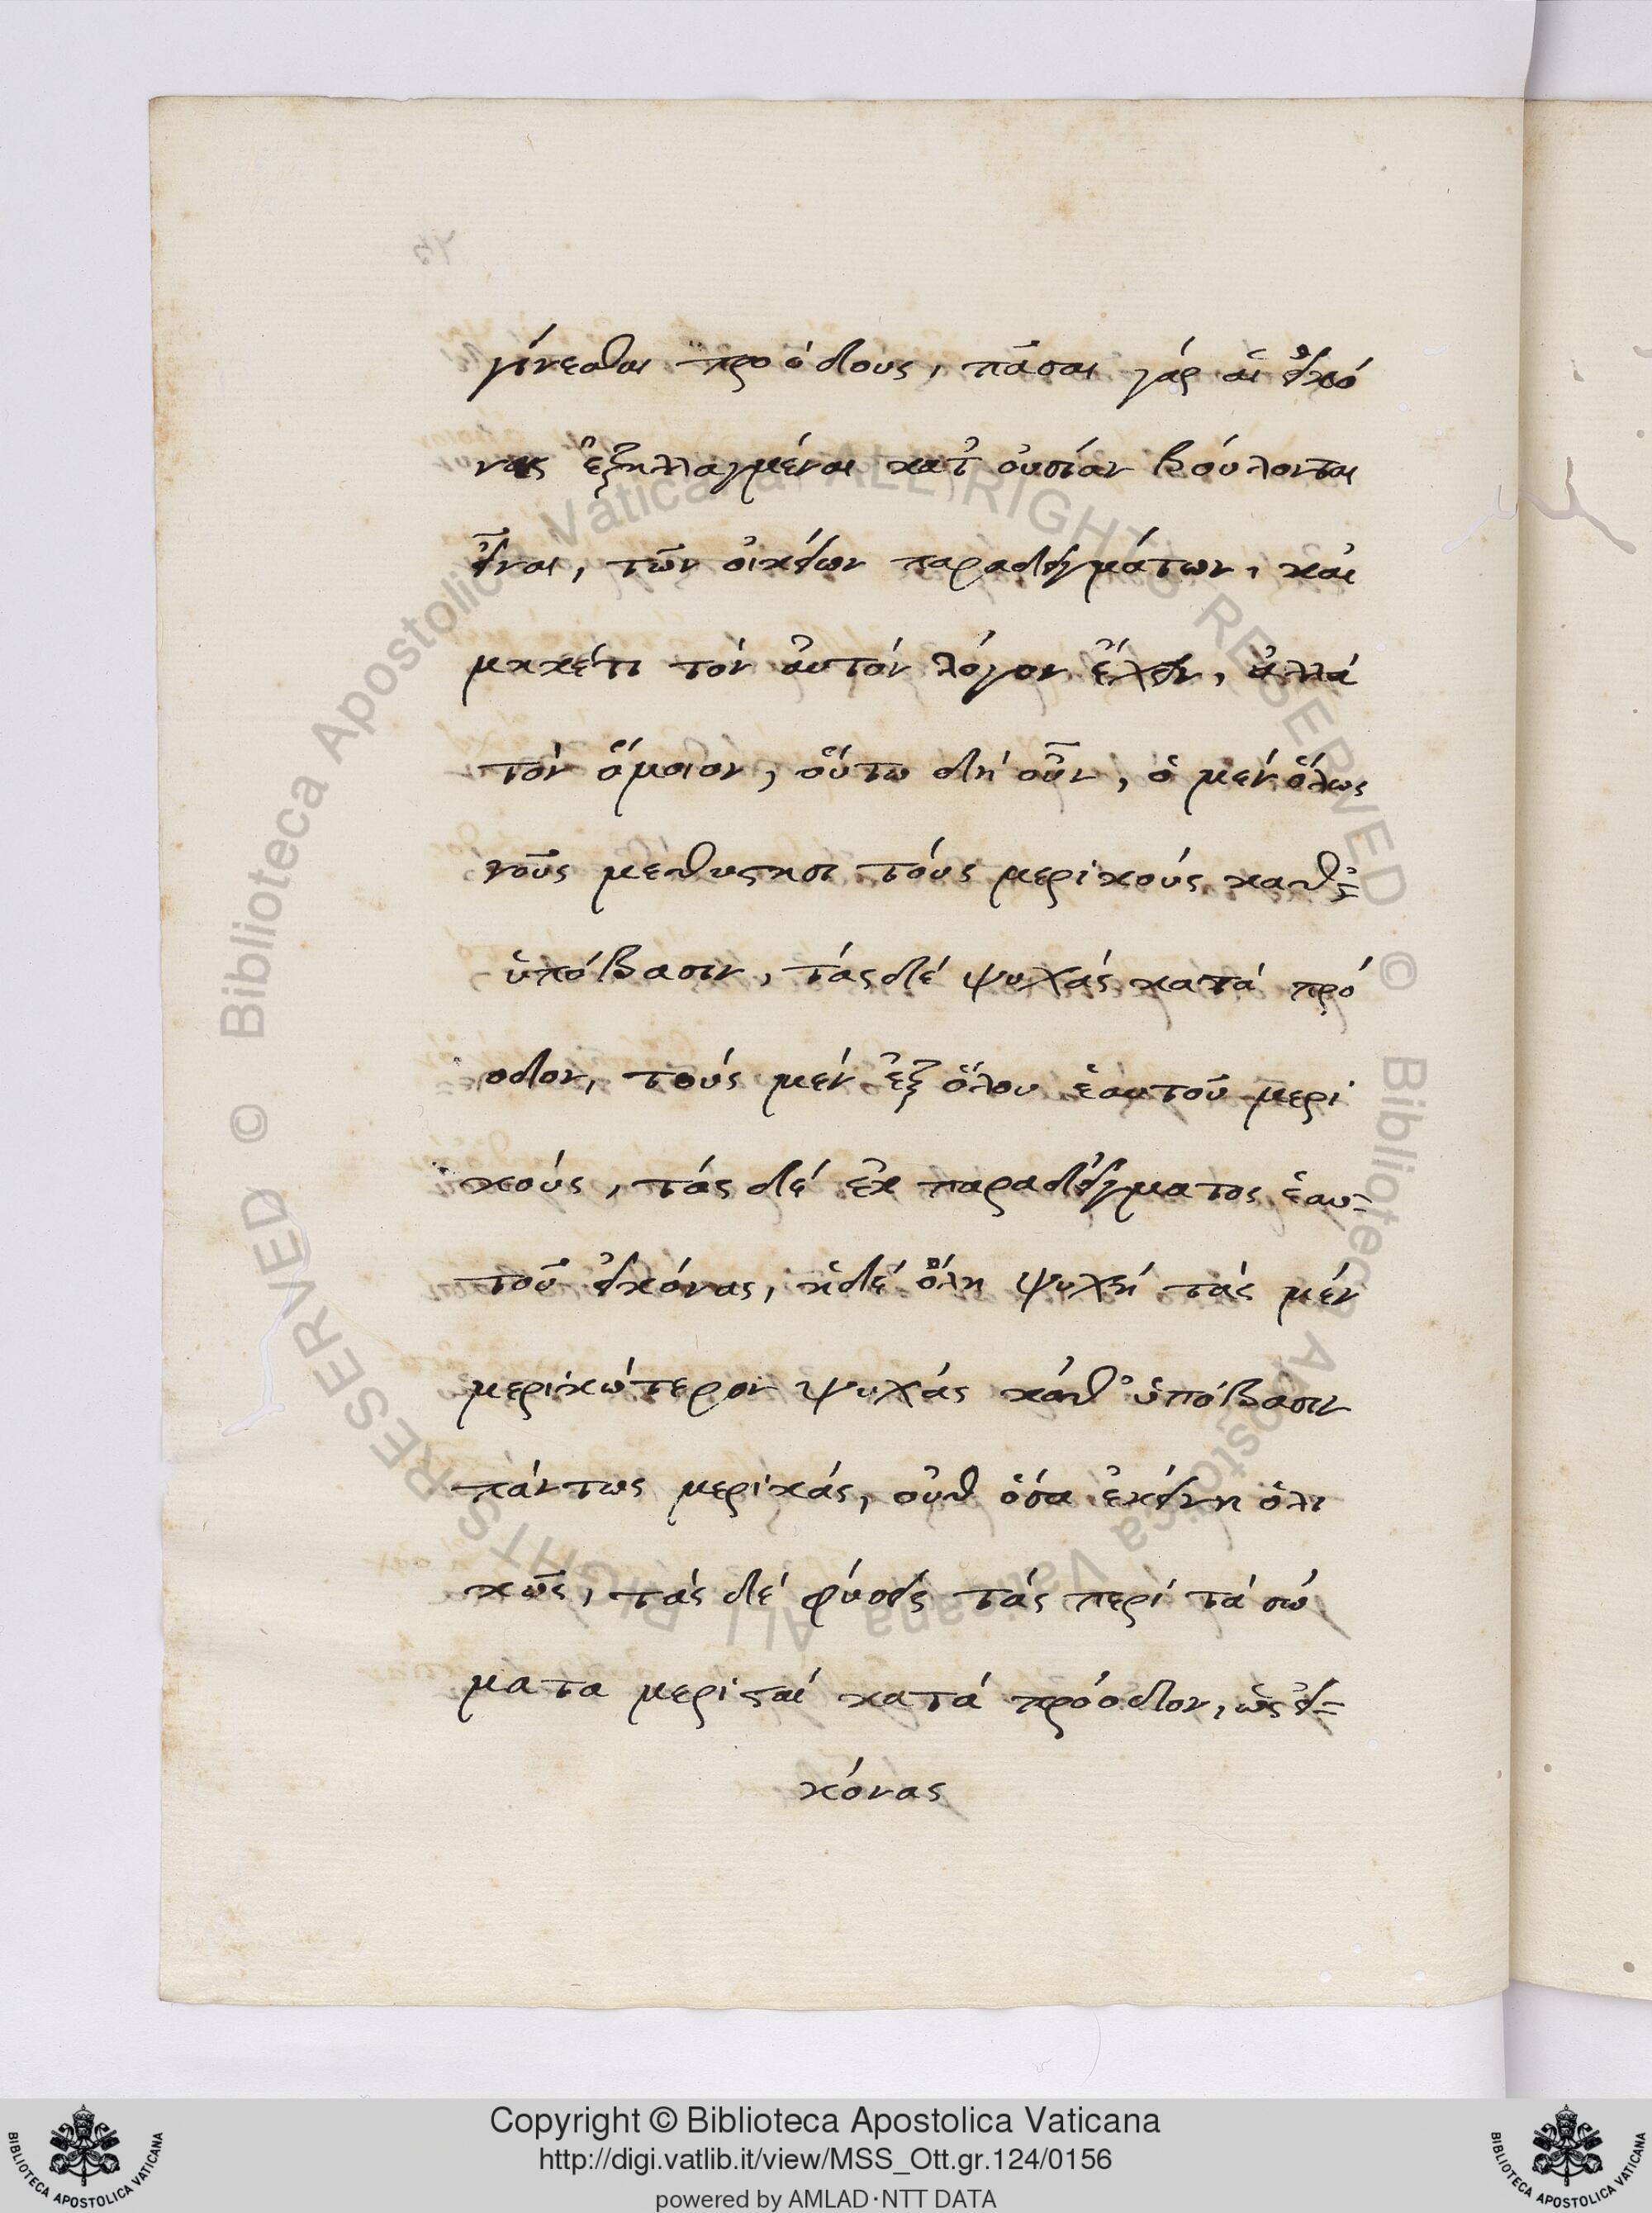 γίνεσθαι προόδους, πᾶσαι γάρ αἱ εἰκό
νες ἐξηλλαγμέναι κατ' οὐσίαν βούλονται
εἶναι, τῶν οἰκείων παραδειγμάτων, καὶ
μηκέτι τόν αὐτόν λόγον ἔχειν, ἀλλά
τόν ὅμοιον, οὕτω δή οὖν, ὁ μέν ὅλως
νοῦς μεθίστησι τούς μερικούς καθ'=
ὑπόβασιν, τάς δέ ψυχάς κατά πρό
οδον, τούς μέν ἐξ ὅλου ἑαυτοῦ μερι
κούς, τάς δέ ἐκ παραδείγματος ἑαυ=
τοῦ εἰκόνας, ἡ δέ ὅλη ψυχή τάς μέν
μερικώτερον ψυχάς καθ' ὑπόβασιν
πάντως μερικάς, οὐθ ὅσα ἐκείνη ὁλι
κῶς, τάς δέ φύσεις τάς περί τά σώ
ματα μεριστάς κατά πρόοδον, ὡς εἰ=
κόνας
Copyright © Biblioteca Apostolica Vaticana
http://digi.vatlib.it/view/MSS_Ott.gr.124/0156
powered by AMLAD·NTT DATA